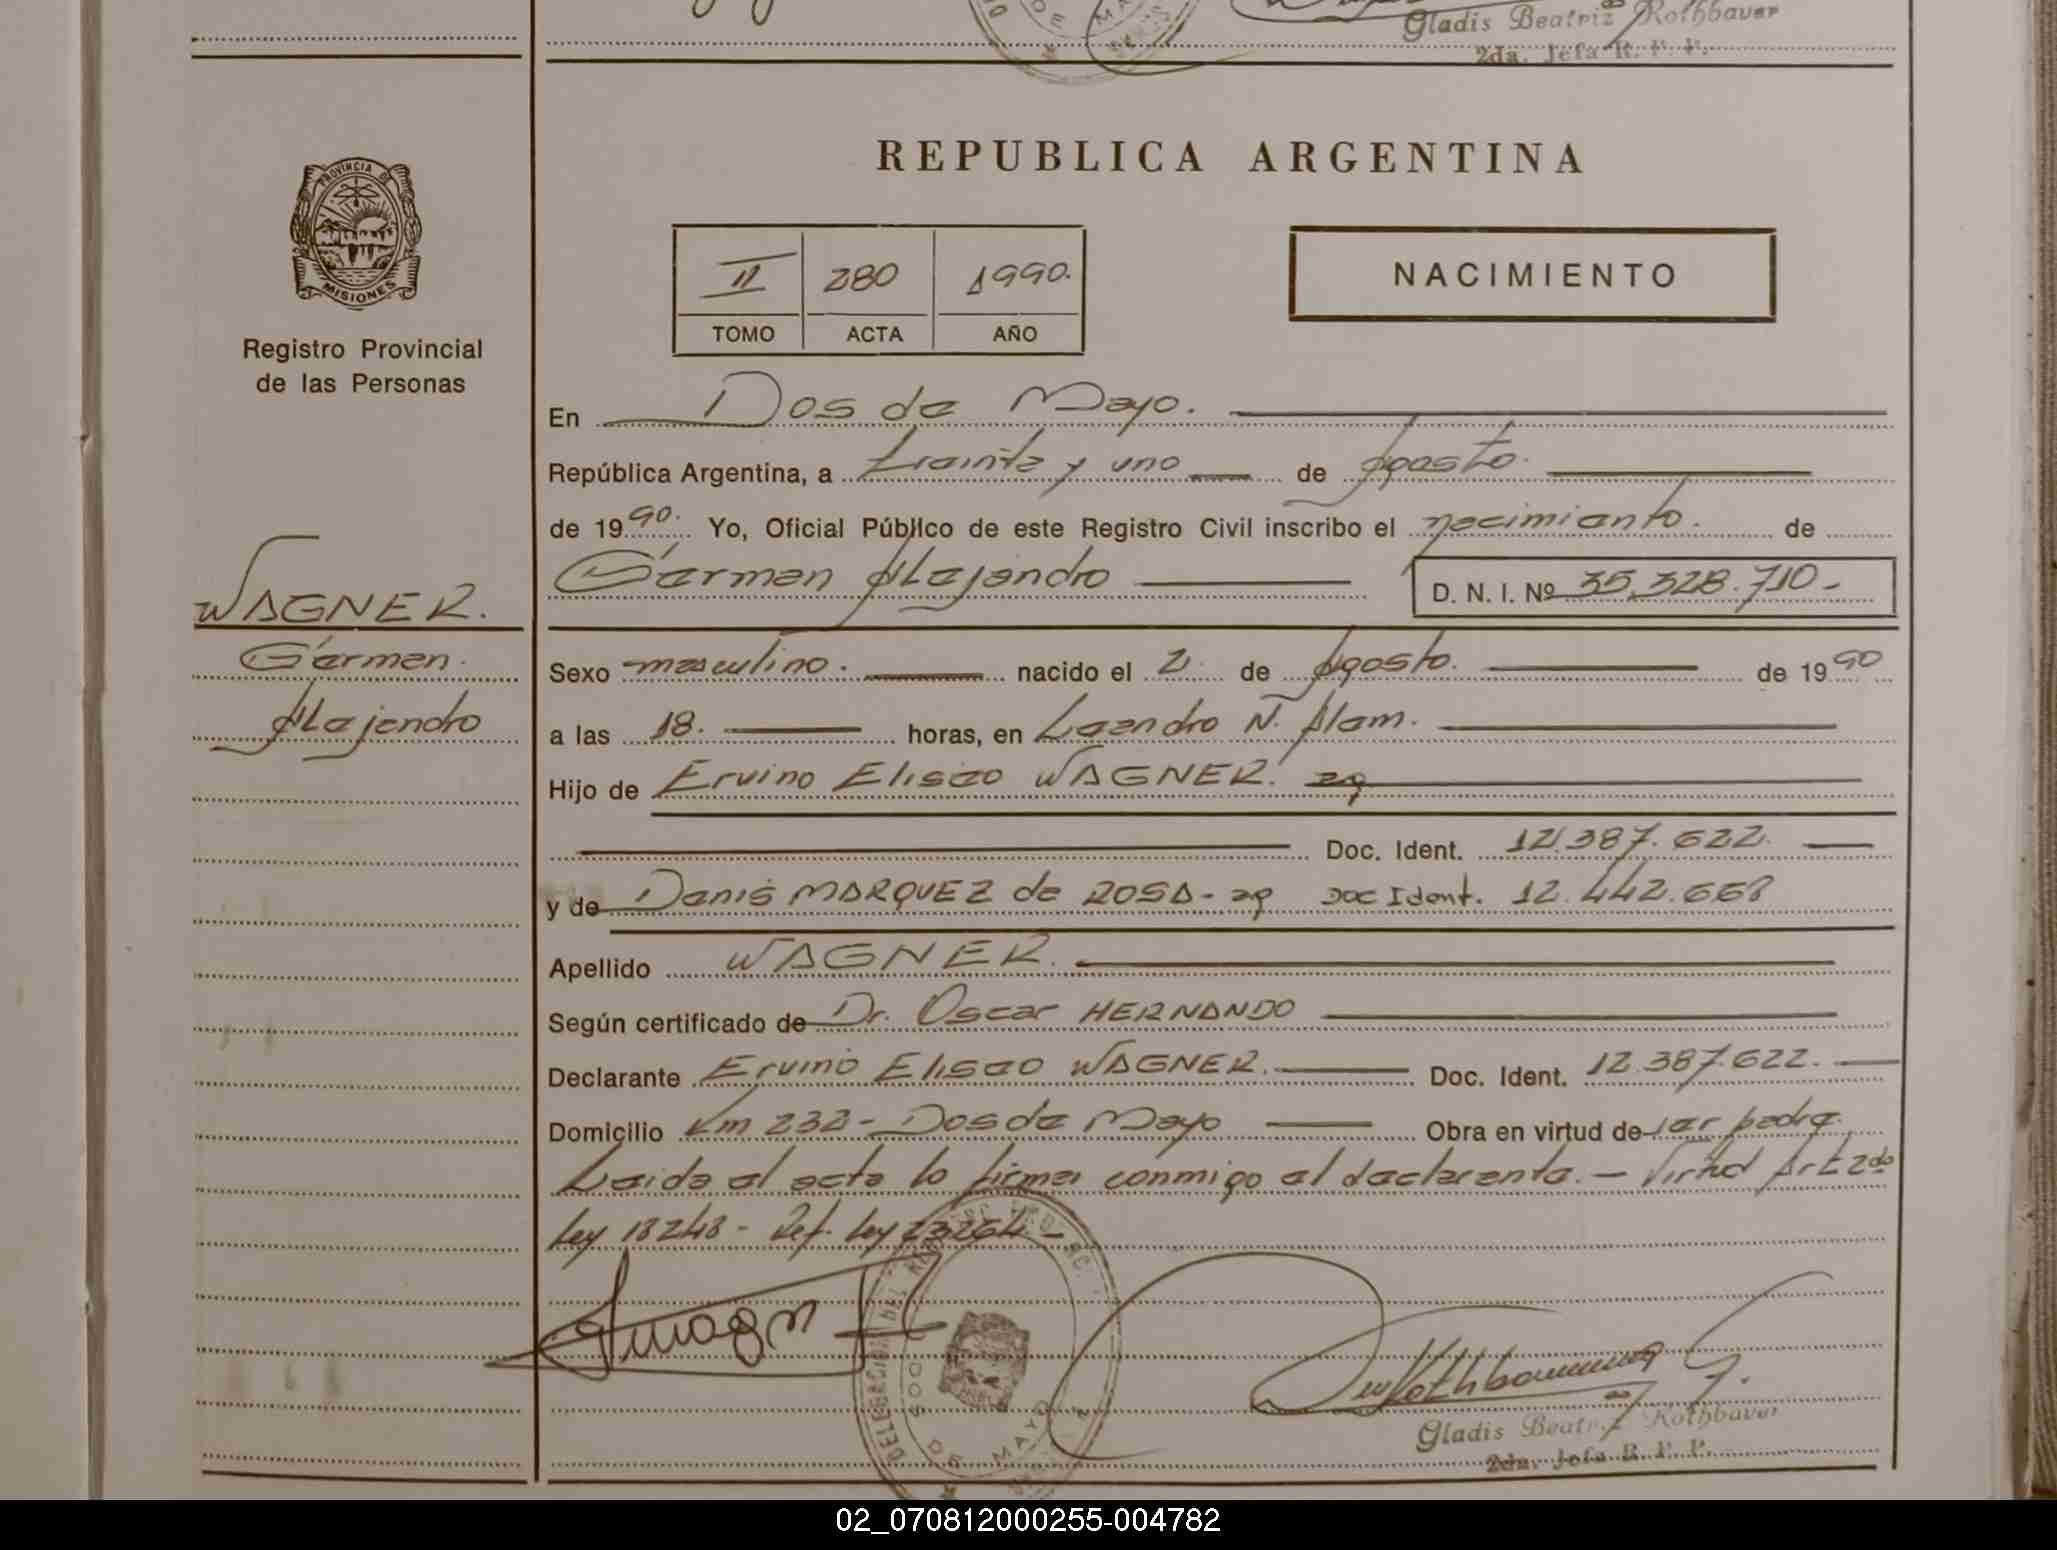 Gladis Beatriz Rothbauer
2da. Jefa R. P. P.
PROVINCIA DE
MISIONES
Registro Provincial
de las Personas
REPUBLICA ARGENTINA
II 280 1990.
TOMO ACTA AÑO
NACIMIENTO
En Dos de Mayo.
República Argentina, a treinta y uno de Agosto.
de 1990. Yo, Oficial Público de este Registro Civil inscribo el nacimiento. de
Gérman Alejandro D. N. I. Nº 35.328.710-
WAGNER.
Gérman.
Alejandro
Sexo masculino. nacido el 2. de Agosto. de 1990
a las 18. horas, en Leandro N. Alem.
Hijo de Ervino Eliseo WAGNER. ag
Doc. Ident. 12.387.622.
y de Denis MARQUEZ de ROSA- ag Doc Ident. 12.442.668
Apellido WAGNER.
Según certificado de Dr. Oscar HERNANDO
Declarante Ervino Eliseo WAGNER. Doc. Ident. 12.387.622.
Domicilio Km 232- Dos de Mayo Obra en virtud de ser padre.
Leida el acta lo firma conmigo el declarante. - Virtud Art 2do
Ley 18248- Ref. Ley 23264-
DOS DE MAYO
Gladis Beatriz Rothbauer
2da. Jefa R. P. P.
02_070812000255-004782